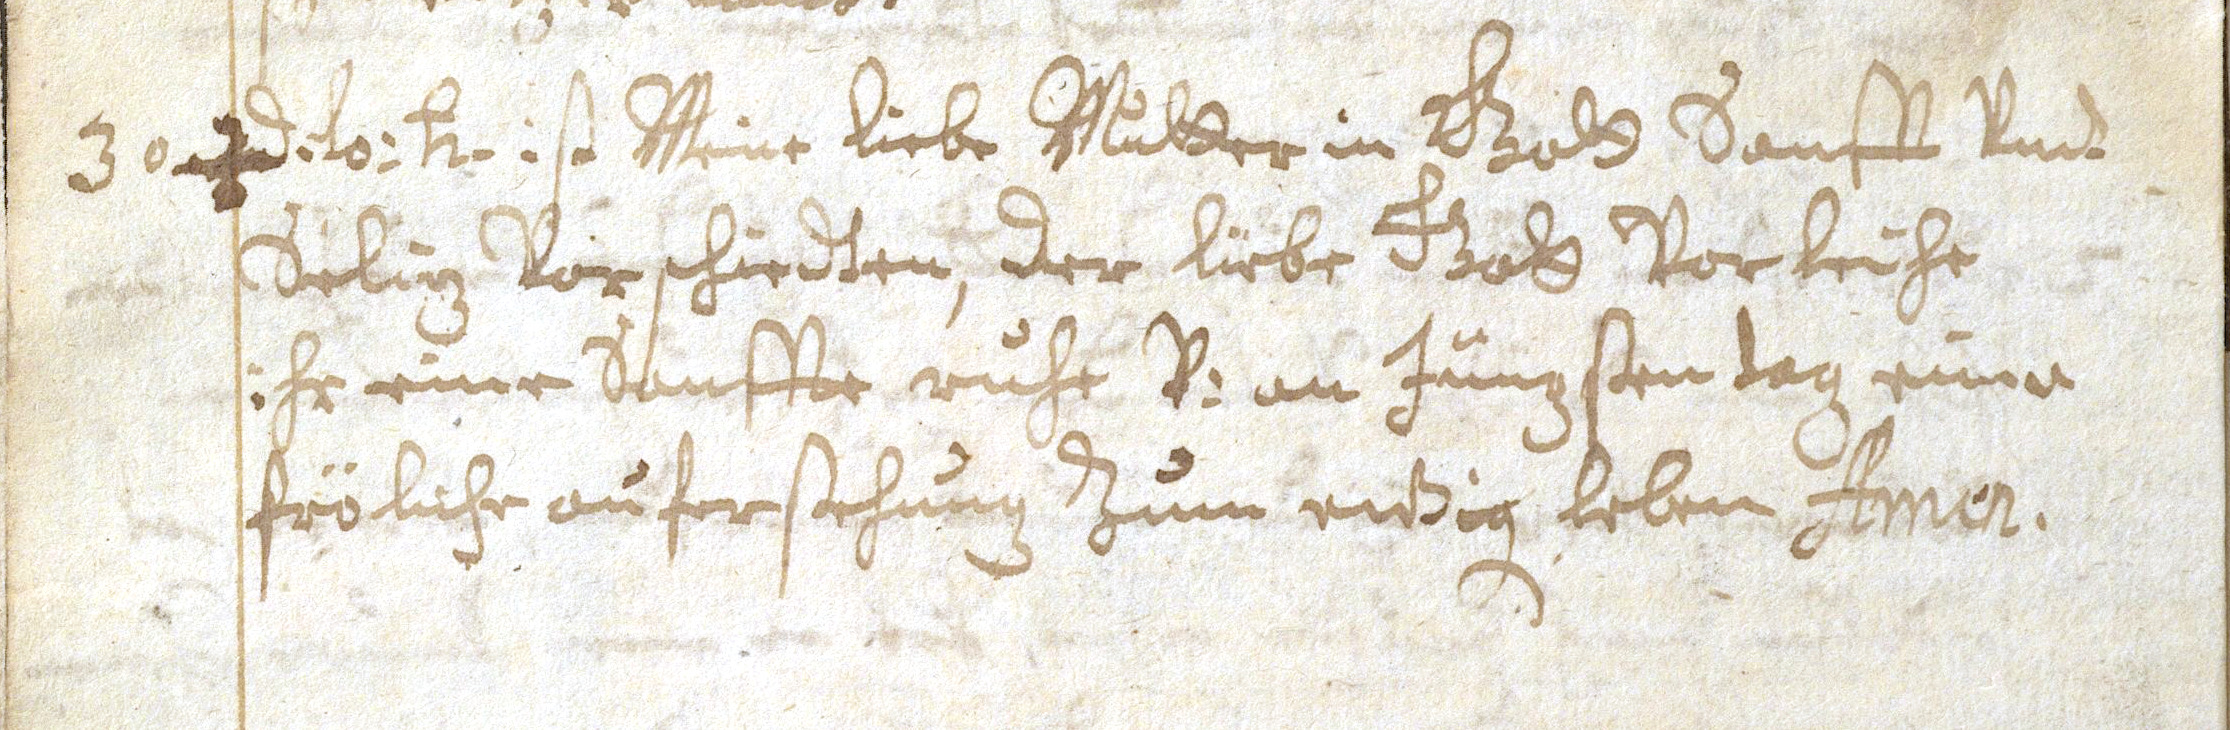 30 d: lo: h. ist Meine liebe Mutter in Gott Sanfft Vnd
Selig Vorschiedten, der liebe Gott Vorleihe
ihr eine Sanffte ruhe V: an Jüngsten tag eine
fröliche auferstehung Zum ewig leben Amen.